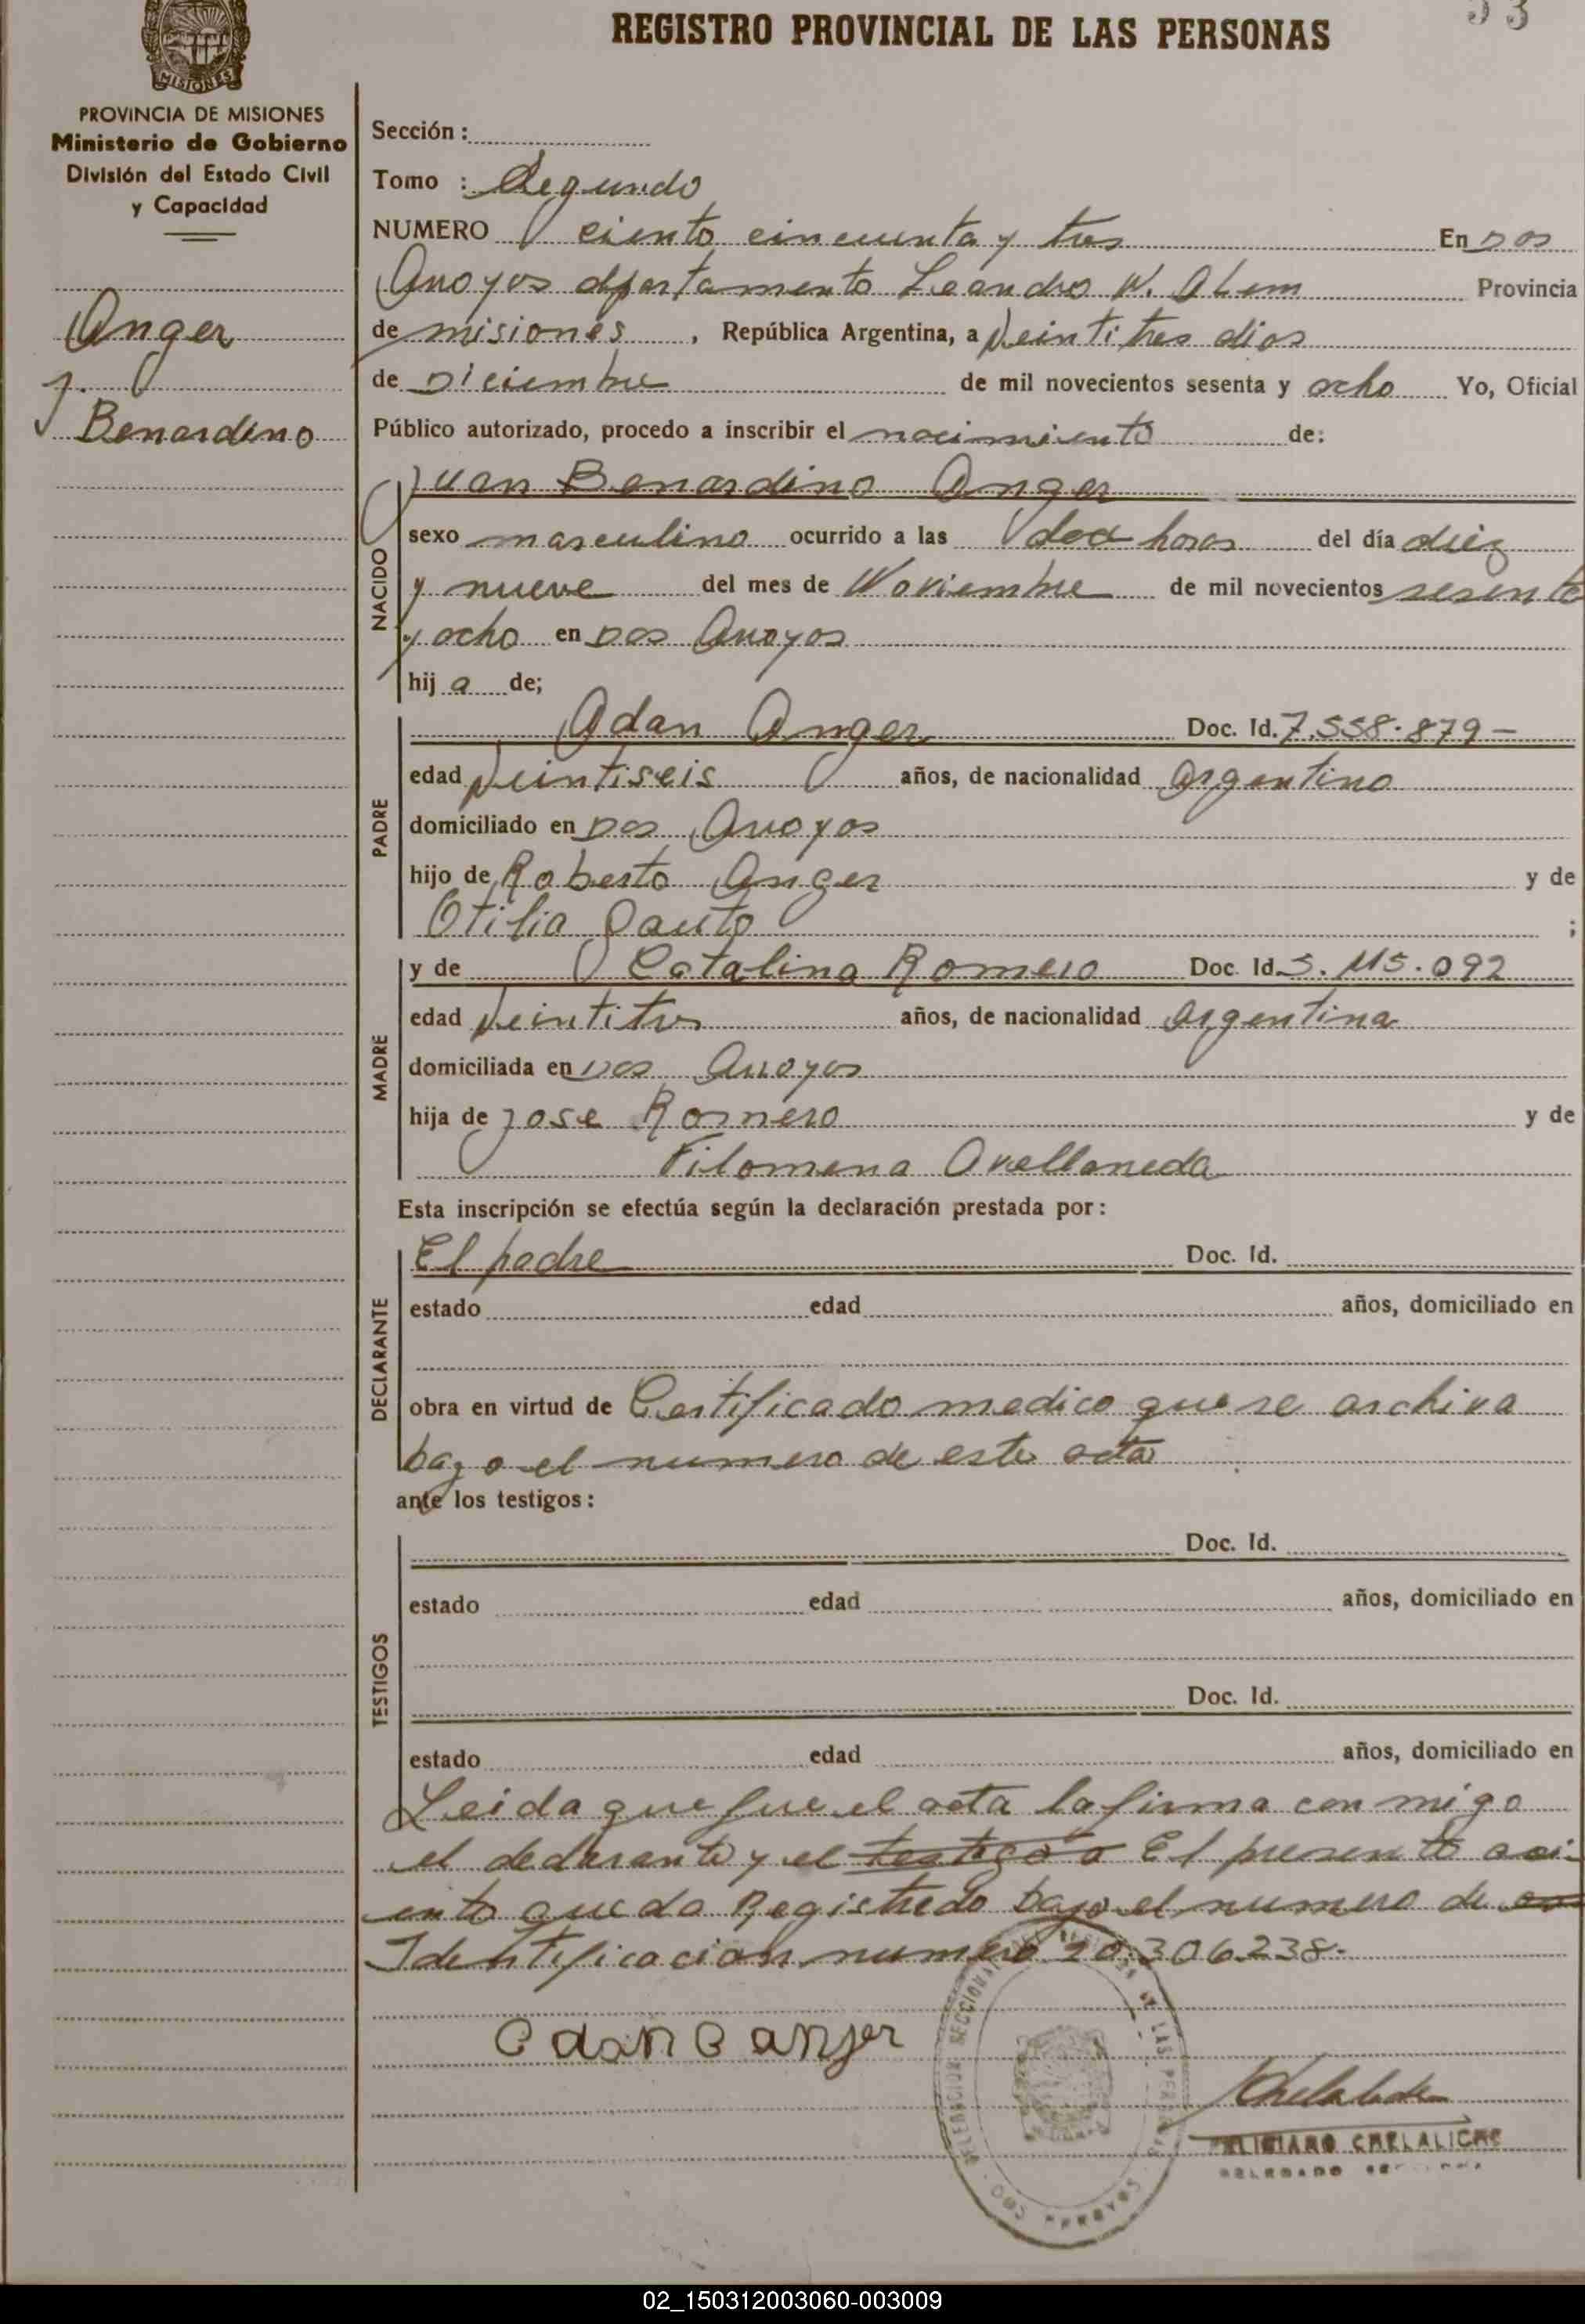 REGISTRO PROVINCIAL DE LAS PERSONAS
53
MISIONES
PROVINCIA DE MISIONES
Ministerio de Gobierno
División del Estado Civil
y Capacidad
Anger
J.
Benardino
Sección :
Tomo : Segundo
NUMERO ciento cincuenta y tres En Dos
Arroyos departamento Leandro N. Alem Provincia
de misiones , República Argentina, a veinti tres dias
de Diciembre de mil novecientos sesenta y ocho Yo, Oficial
Público autorizado, procedo a inscribir el nacimiento de:
Juan Benardino Anger
NACIDO
sexo masculino ocurrido a las dos horas del día diez
y nueve del mes de Noviembre de mil novecientos sesenta
y ocho en Dos Arroyos
hij a de;
PADRE
Adan Anger Doc. Id. 7.558.879 -
edad veintiseis años, de nacionalidad argentino
domiciliado en Dos Arroyos
hijo de Roberto Anger y de
Otilia ;
MADRE
y de Catalina Romero Doc. Id. 5.115.092
edad veintitres años, de nacionalidad argentina
domiciliada en Dos Arroyos
hija de Jose Romero y de
Filomena Avellaneda
Esta inscripción se efectúa según la declaración prestada por :
DECLARANTE
El padre Doc. Id.
estado edad años, domiciliado en
obra en virtud de Certificado medico que se archiva
bajo el numero de este acta
ante los testigos :
TESTIGOS
Doc. Id.
estado edad años, domiciliado en
Doc. Id.
estado edad años, domiciliado en
Leida que fue el acta la firma con migo
el declarante y el testigo El presente asi-
ento queda Registrado bajo el numero de
Identificacion numero 20.306.238-
DOS ARROYOS
FELICIANO CHELALICHE
DELEGADO
02_150312003060-003009